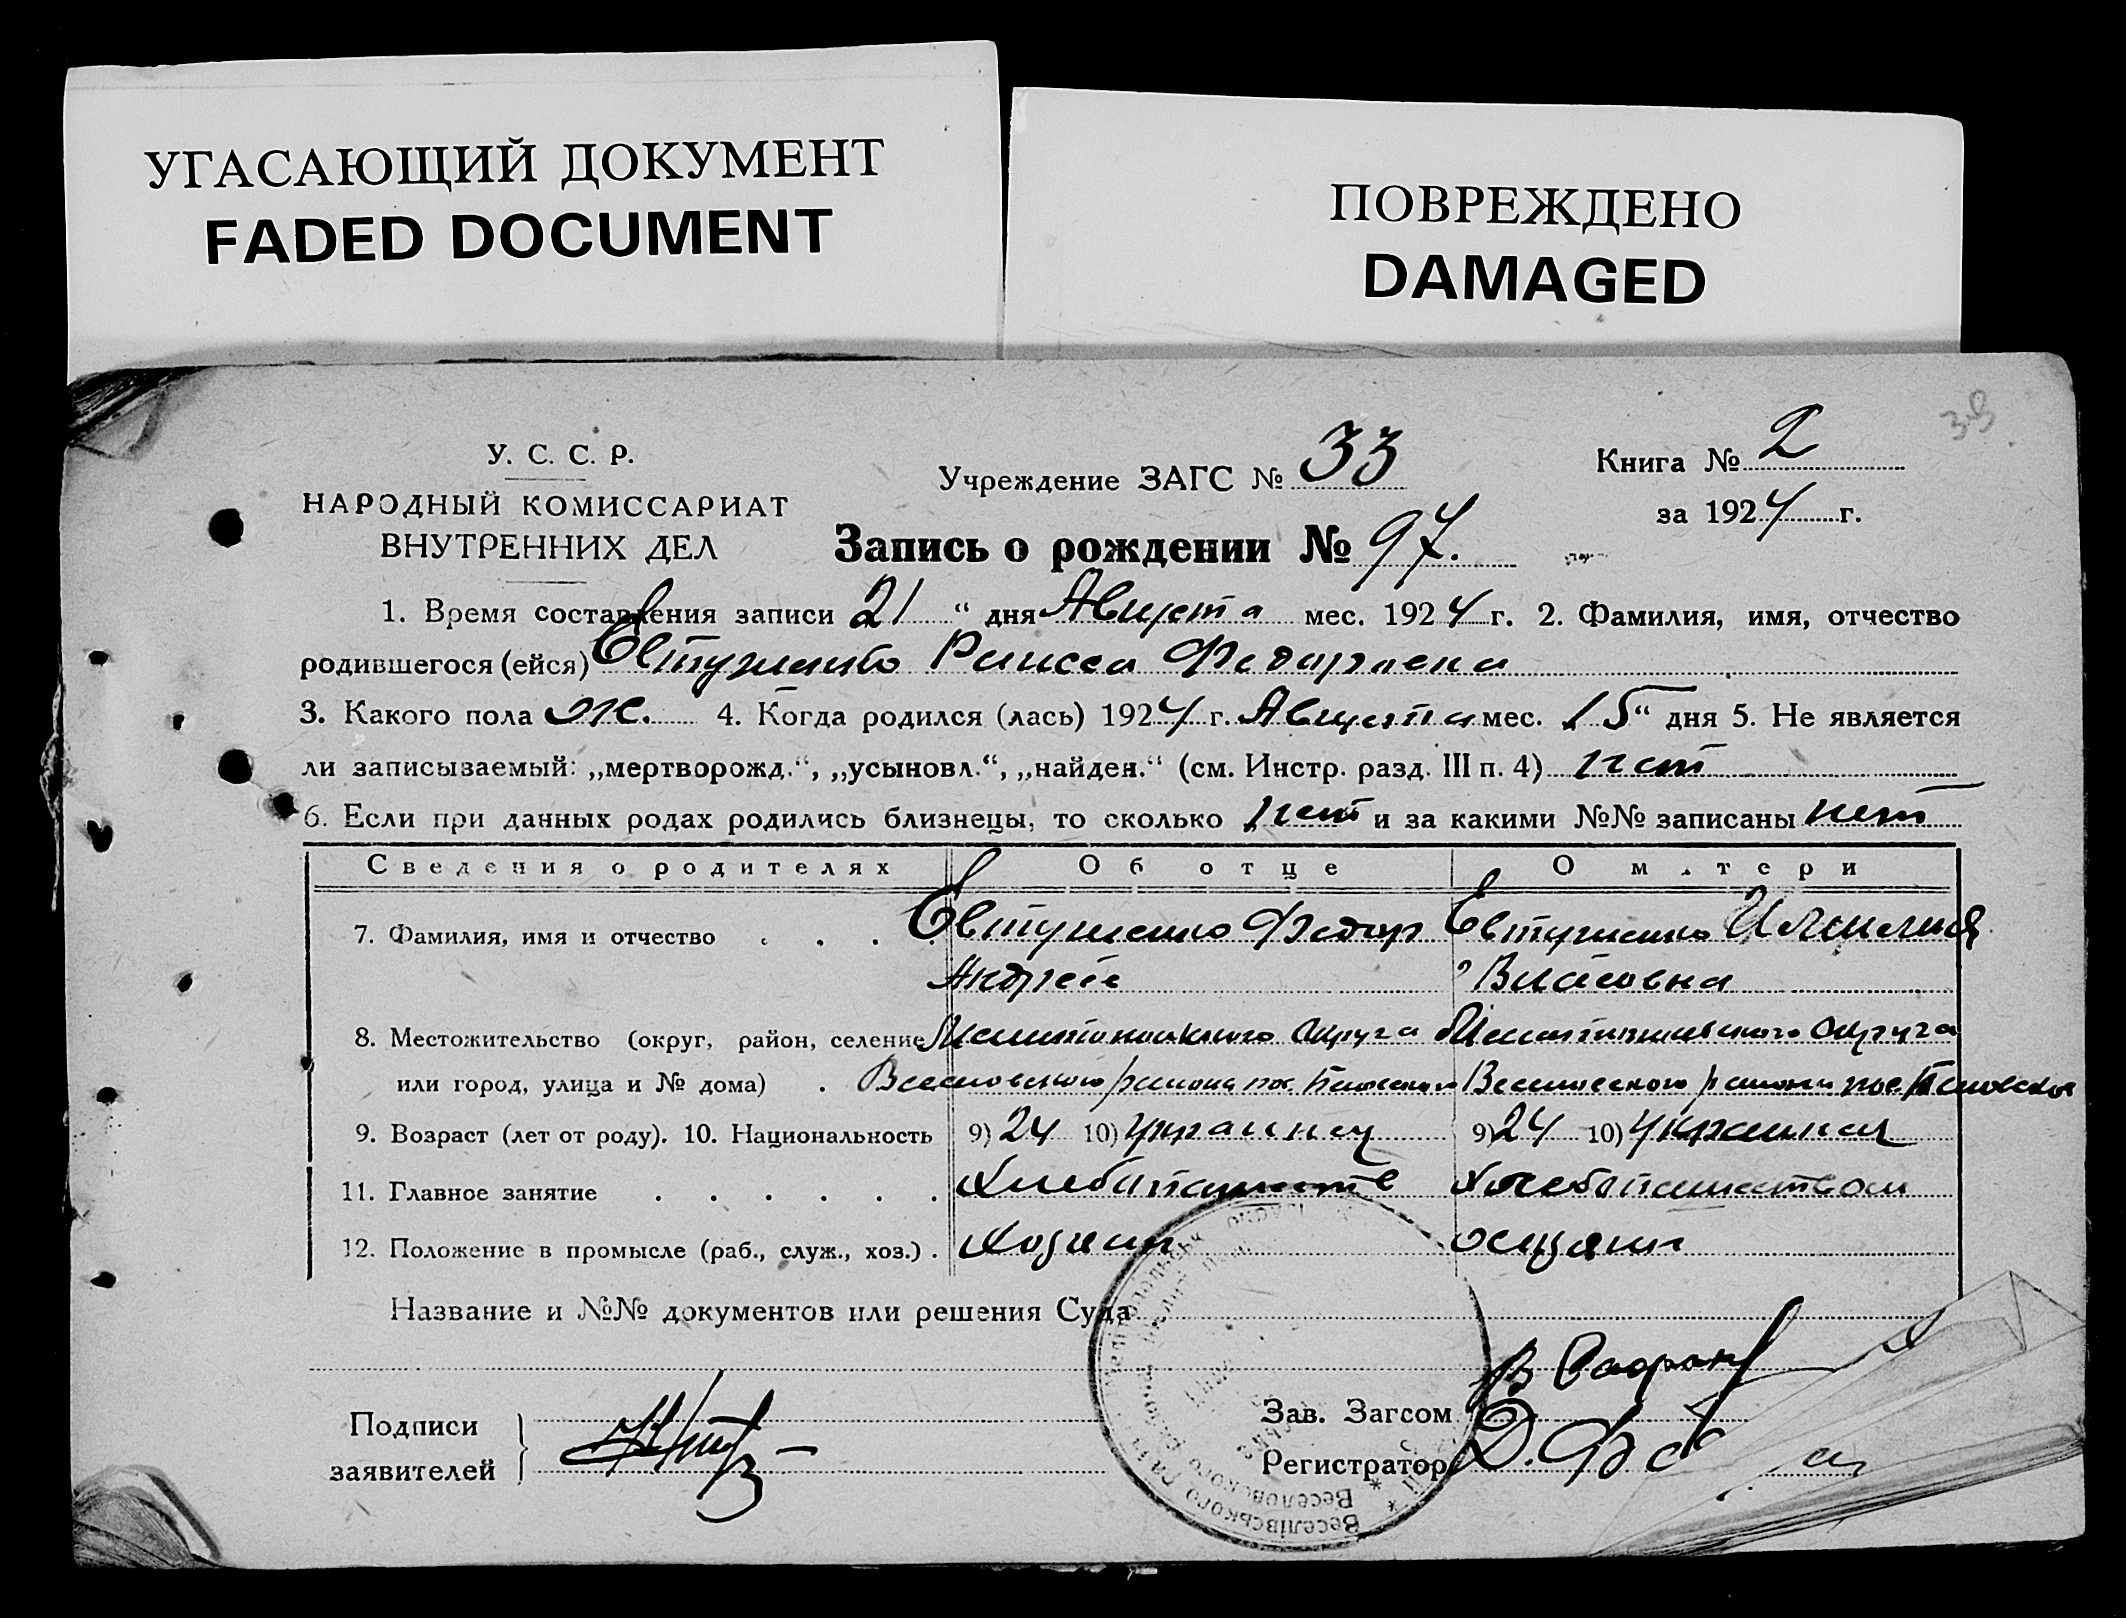 УГАСАЮЩИЙ ДОКУМЕНТ
FADED DOCUMENT
ПОВРЕЖДЕНО
DAMAGED
39
У. С. С. Р.
НАРОДНЫЙ КОМИССАРИАТ
ВНУТРЕННИХ ДЕЛ
Учреждение ЗАГС № 33
Книга № 2
за 1924 г.
Запись о рождении № 97.
1. Время составления записи 21 “ дня Августа мес. 1924 г. 2. Фамилия, имя, отчество
родившегося (ейся) Евтушенко Раисса Федоровна
3. Какого пола ж. 4. Когда родился (лась) 1924 г. Августа мес. 15 “ дня 5. Не является
ли записызаемый: „мертворожд.“, „усыновл.“, „найден.“ (см. Инстр. разд. III п. 4) нет
6. Если при данных родах родились близнецы, то сколько нет и за какими №№ записаны нет
Сведения о родителях Об отце О матери
7. Фамилия, имя и отчество Евтушенко Федор Евтушенко
Андрее Власовна
8. Местожительство (округ, район, селение Мелитопольского Округа Мелитопольского Округа
или город, улица и № дома) Веселовского района пос. Веселовского района пос.
9. Возраст (лет от роду). 10. Национальность 9) 24 10) украинец 9) 24 10) Украинка
11. Главное занятие Хлебопашеств Хлебопашеством
12. Положение в промысле (раб., служ., хоз.) . Хозяин
Название и №№ документов или решения Суда
Подписи
заявителей
Зав. Загсом
Регистратор
Веселовского
Веселівського